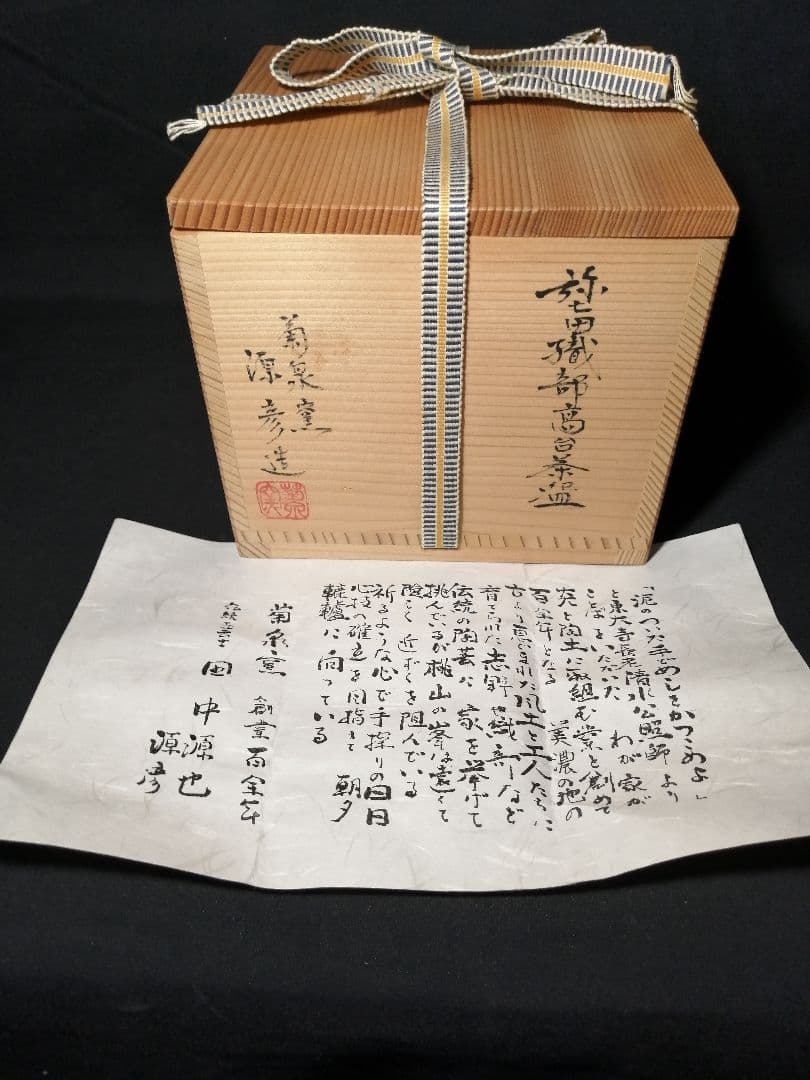 弥七田織部高台茶盌
菊泉窯
源彦造
「泥のついた手でめしをかっこめよ」
と東大寺長老清水公照師より
ことばをいただいた わが家が
炎と陶土に取組む業を創めて
百余年となる 美濃の地の
古より恵まれた風土と工人たちに
育てられた志野や織部など
伝統の陶芸に家を挙げて
挑んでいるが桃山の峯は遠くて
険しく近ずくを阻んでいる
祈るような心で手探りの日日
心技の確立を目指して 朝夕
轆轤に向っている
菊泉窯 創業百余年
伝統工芸士 田中源也
源彦